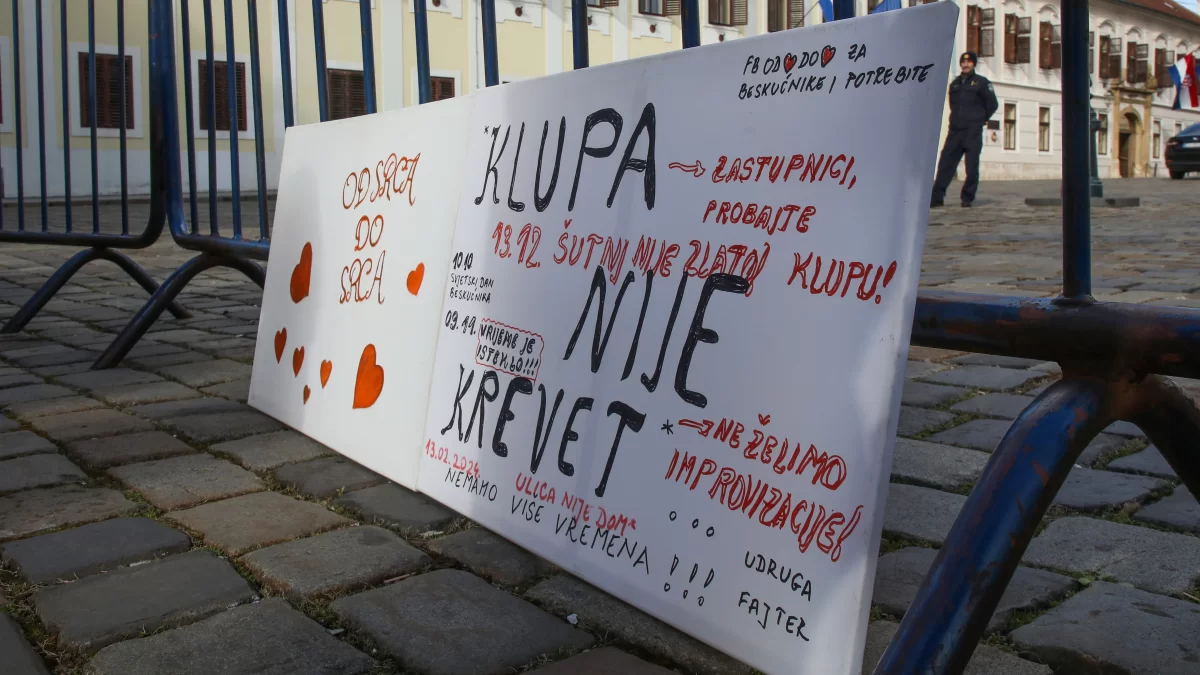 OD SRCA
DO
SRCA
FB OD❤DO❤ ZA
BESKUĆNIKE I POTREBITE
*KLUPA
→ ZASTUPNICI,
PROBAJTE
KLUPU!
13.12. ŠUTNJ NIJE ZLATO!
10.10
SVJETSKI DAN
BESKUĆNIKA
NIJE
09.19.
VRIJEME JE
ISTEKLO!!!
KREVET
*→ NE ŽELIMO
IMPROVIZACIJE!
13.02.2024.
ULICA NIJE DOM*
NEMAMO VISE VREMENA !!!
UDRUGA
FAJTER